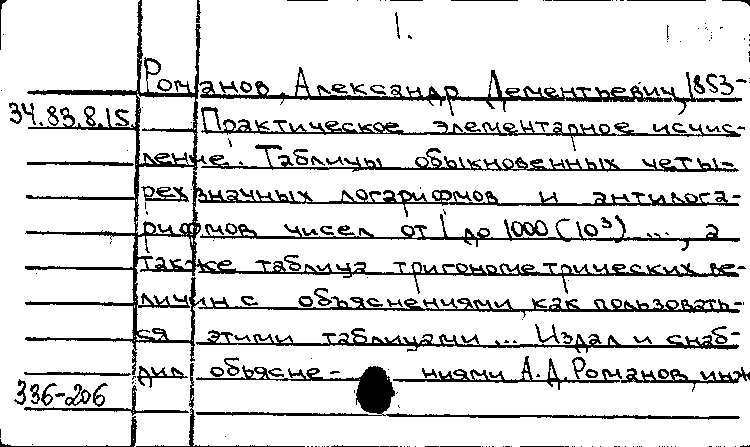 1.
Романов, Александр Дементьевич, 1853-
34.83.8.15. Практическое элементарное исчис-
ление. Таблицы обыкновенных четы-
рехзначных логарифмов и антилога-
рифмов чисел от 1 до 1000 (10³) ..., а
также таблица тригонометрических ве-
личин с объяснениями, как пользовать-
ся этими таблицами ... Издал и снаб-
дил объясне- ниями А.Д. Романов, инж
336-206